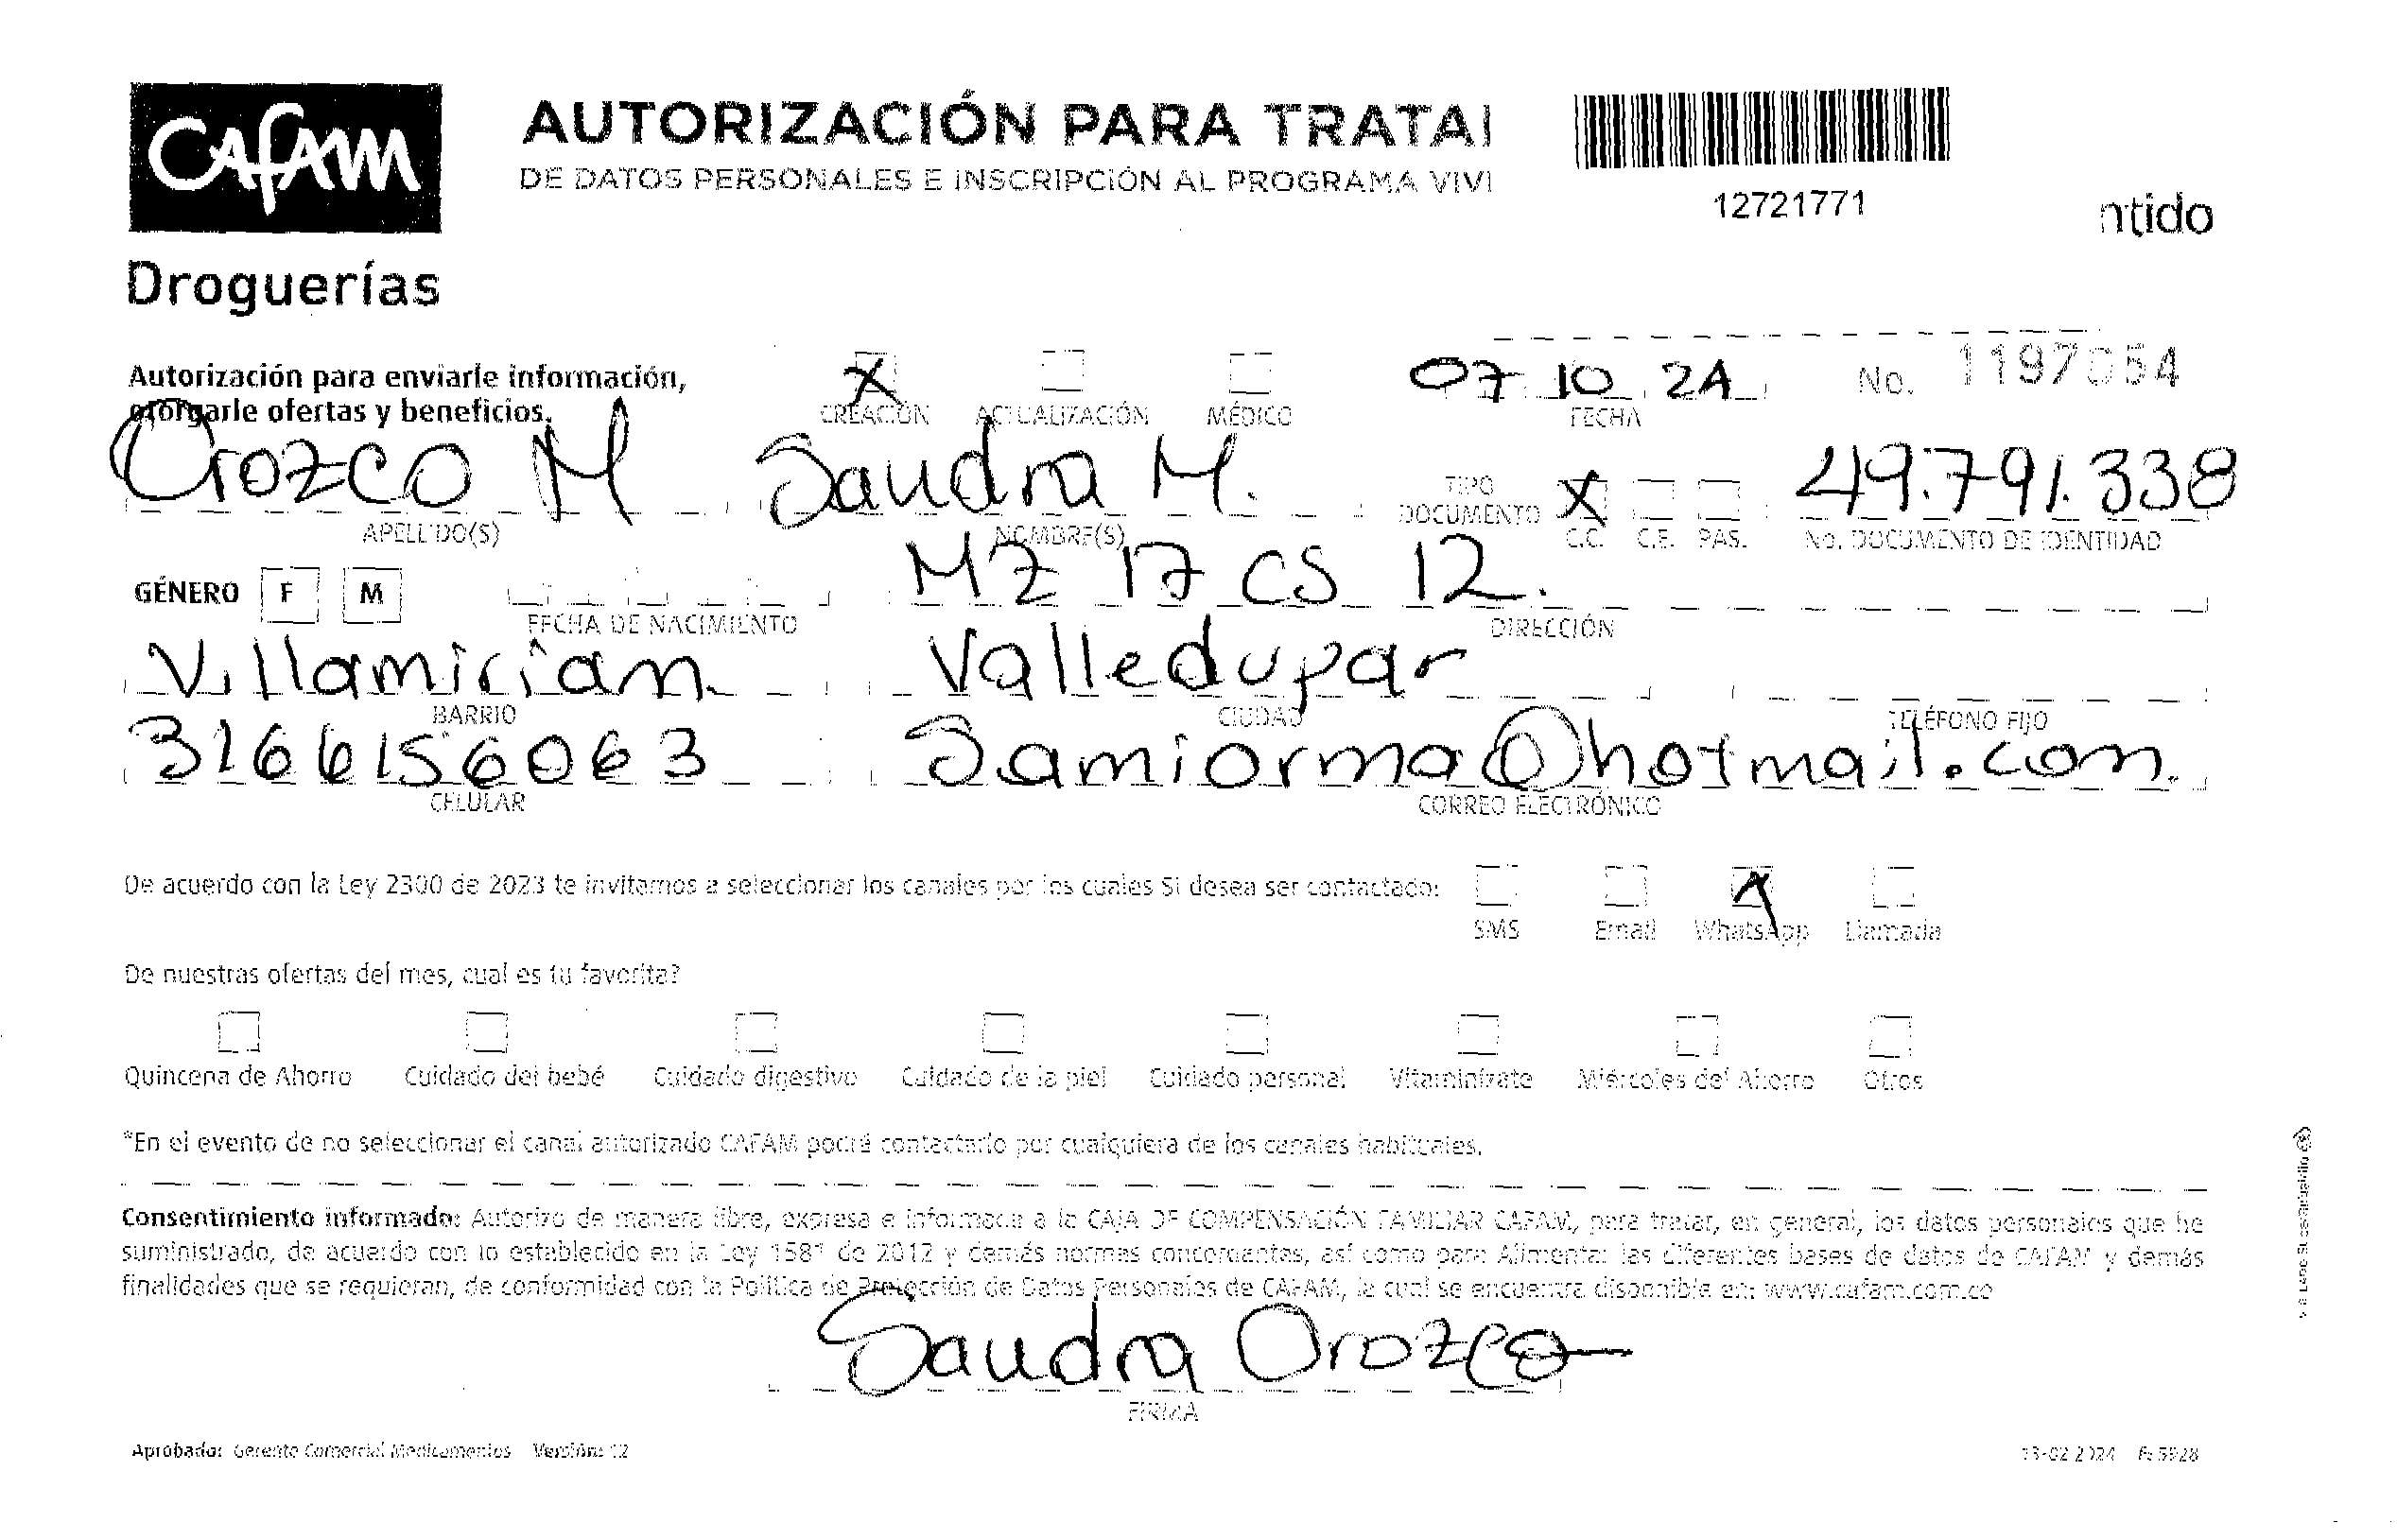 CAFAM
Droguerías
AUTORIZACIÓN PARA TRATAI
DE DATOS PERSONALES E INSCRIPCIÓN AL PROGRAMA VIVI
12721771
ntido
Autorización para enviarle información,
otorgarle ofertas y beneficios.
X
CREACIÓN ACTUALIZACIÓN MÉDICO
07 10 24
FECHA
No. 1197054
Orozco M Sandra M.
APELLIDO(S) NOMBRE(S)
TIPO
DOCUMENTO
X
C.C. C.E. PAS.
49.791.338
No. DOCUMENTO DE IDENTIDAD
GÉNERO F M
FECHA DE NACIMIENTO
MZ 17 CS 12.
DIRECCIÓN
Villamiriam Valledupar
BARRIO CIUDAD TELÉFONO FIJO
3166156063 Samiorma@hotmail.com.
CELULAR CORREO ELECTRÓNICO
De acuerdo con la Ley 2300 de 2023 te invitamos a seleccionar los canales por los cuales Si desea ser contactado:
X
SMS Email WhatsApp Llamada
De nuestras ofertas del mes, cual es tu favorita?
Quincena de Ahorro Cuidado del bebé Cuidado digestivo Cuidado de la piel Cuidado personal Vitaminízate Miércoles del Ahorro Otros
*En el evento de no seleccionar el canal autorizado CAFAM podrá contactarlo por cualquiera de los canales habituales.
Consentimiento informado: Autorizo de manera libre, expresa e informada a la CAJA DE COMPENSACIÓN FAMILIAR CAFAM, para tratar, en general, los datos personales que he
suministrado, de acuerdo con lo establecido en la Ley 1581 de 2012 y demás normas concordantes, así como para Alimentar las diferentes bases de datos de CAFAM y demás
finalidades que se requieran, de conformidad con la Política de Protección de Datos Personales de CAFAM, la cual se encuentra disponible en: www.cafam.com.co
Sandra Orozco
FIRMA
Aprobado: Gerente Comercial Medicamentos Versión: 12
13-02 2024